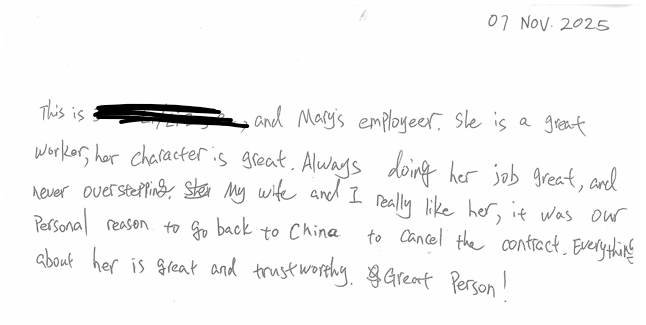 07 NOV. 2025
This is , and Mary's employeer. She is a great
worker, her character is great. Always doing her job great, and
never overstepping. My wife and I really like her, it was our
Personal reason to go back to China to cancel the contract. Everything
about her is great and trustworthy. Great Person!